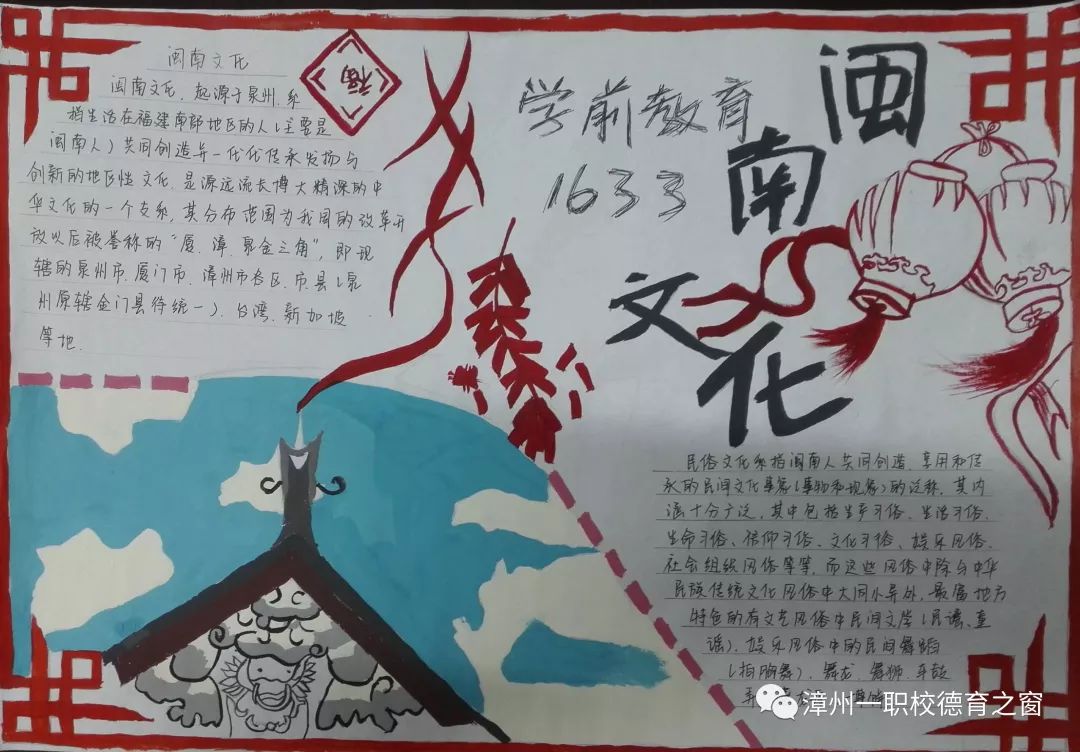 闽南文化
闽南文化，起源于泉州，系
指生活在福建南部地区的人（主要是
闽南人）共同创造并一代代传承发扬与
创新的地区性文化，是源远流长博大精深的中
华文化的一个支系，其分布范围为我国的改革开
放以后被誉称的“厦、漳、泉金三角”，即现
辖的泉州市、厦门市、漳州市各区、市、县（泉
州原辖金门县待统一）、台湾、新加坡
等地.
福
学前教育
1633
闽南文化
民俗文化系指闽南人共同创造、享用和传
承的民间文化事象（事物和现象）的泛称，其内
涵十分广泛，其中包括生产习俗、生活习俗、
生命习俗、信仰习俗、文化习俗、娱乐风俗、
社会组织风俗等等，而这些风俗中除与中华
民族传统文化风俗中大同小异外，最富地方
特色的有文艺风俗中民间文学（民谣、童
谣）、娱乐风俗中的民间舞蹈
（拍胸舞）、舞龙、舞狮、车鼓
漳州一职校德育之窗